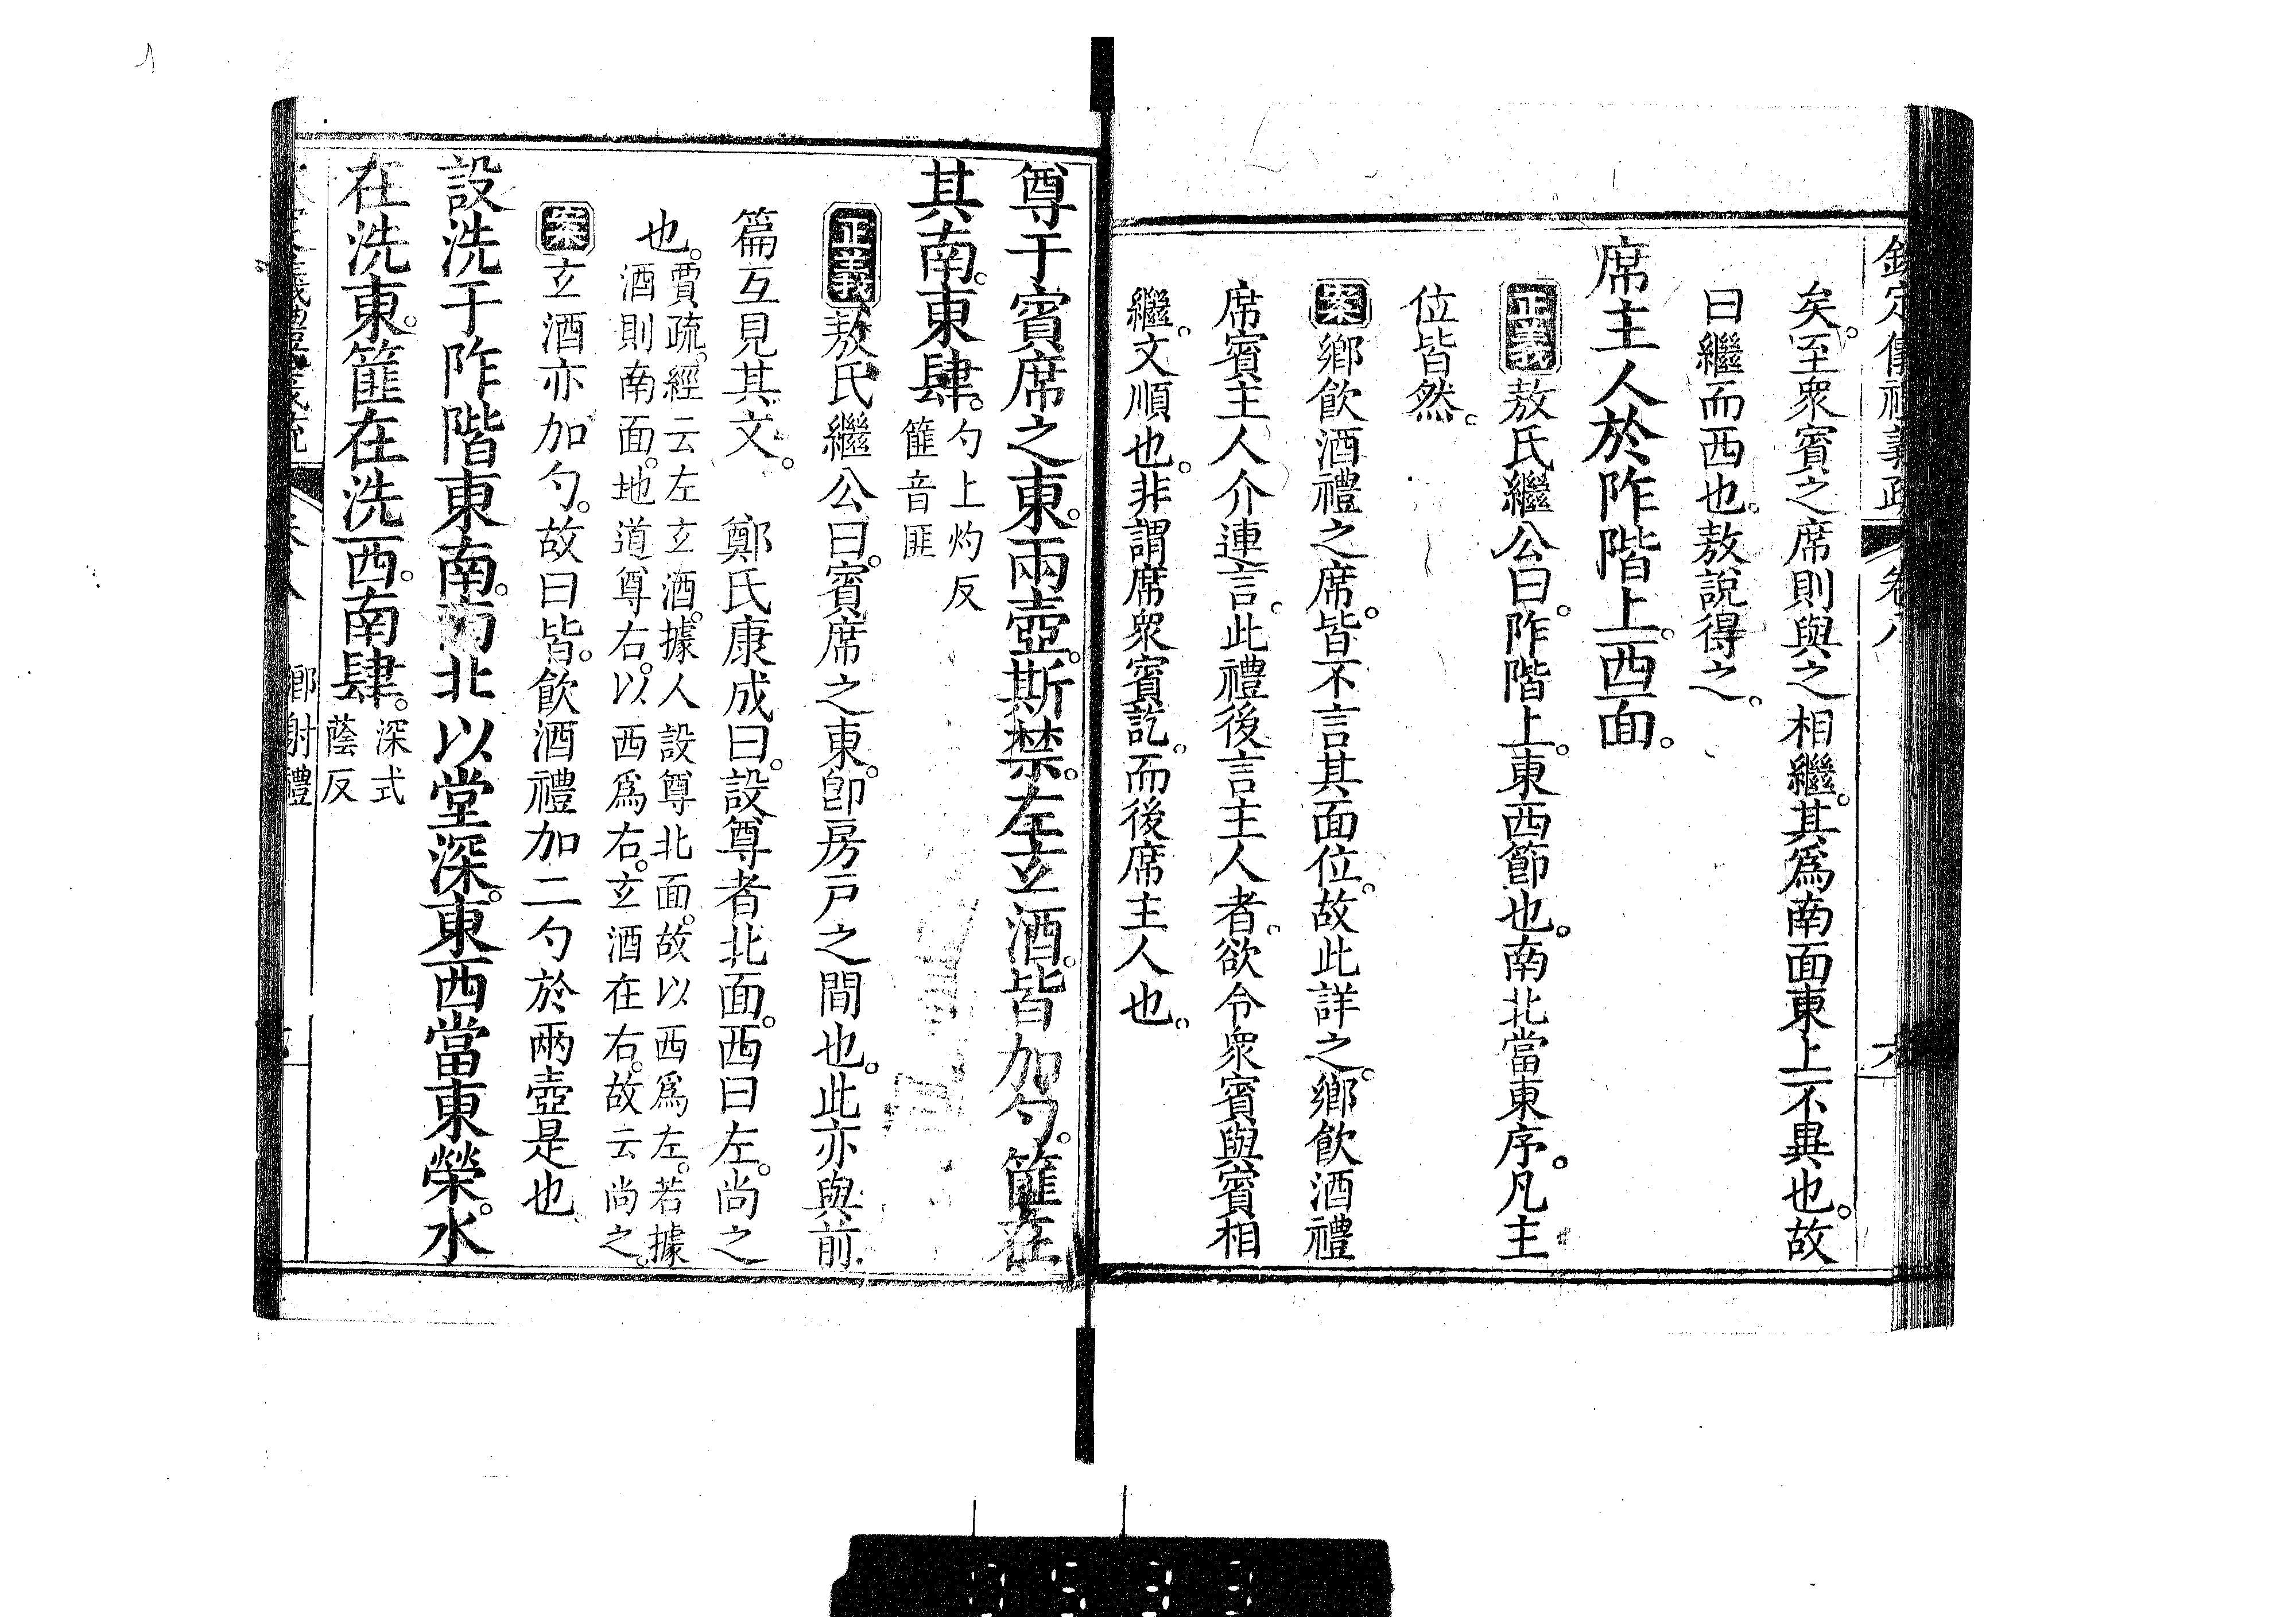 欽定儀禮義疏 卷八
矣。至衆賓之席則與之相繼。其爲南面東上不異也。故
曰繼而西也。敖說得之。
席主人於阼階上。西面。
正義敖氏繼公曰。阼階上。東西節也。南北當東序。凡主
位皆然。
案鄉飲酒禮之席。皆不言其面位。故此詳之。鄉飲酒禮
席賓主人介連言。此禮後言主人者。欲令衆賓與賓相
繼。文順也。非謂席衆賓訖。而後席主人也。
尊于賓席之東。兩壺。斯禁。左玄酒。皆加勺。篚在
其南。東肆。勺上灼反
篚音匪
正義敖氏繼公曰。賓席之東。卽房戸之間也。此亦與前
篇互見其文。 鄭氏康成曰。設尊者北面。西曰左。尚之
也。賈疏。經云左玄酒。據人設尊北面。故以西爲左。若據
酒則南面。地道尊右。以西爲右。玄酒在右。故云尚之。
案玄酒亦加勺。故曰皆。飲酒禮加二勺於兩壺是也
設洗于阼階東南。南北以堂深。東西當東榮。水
在洗東。篚在洗西。南肆。深式
蔭反
鄉射禮